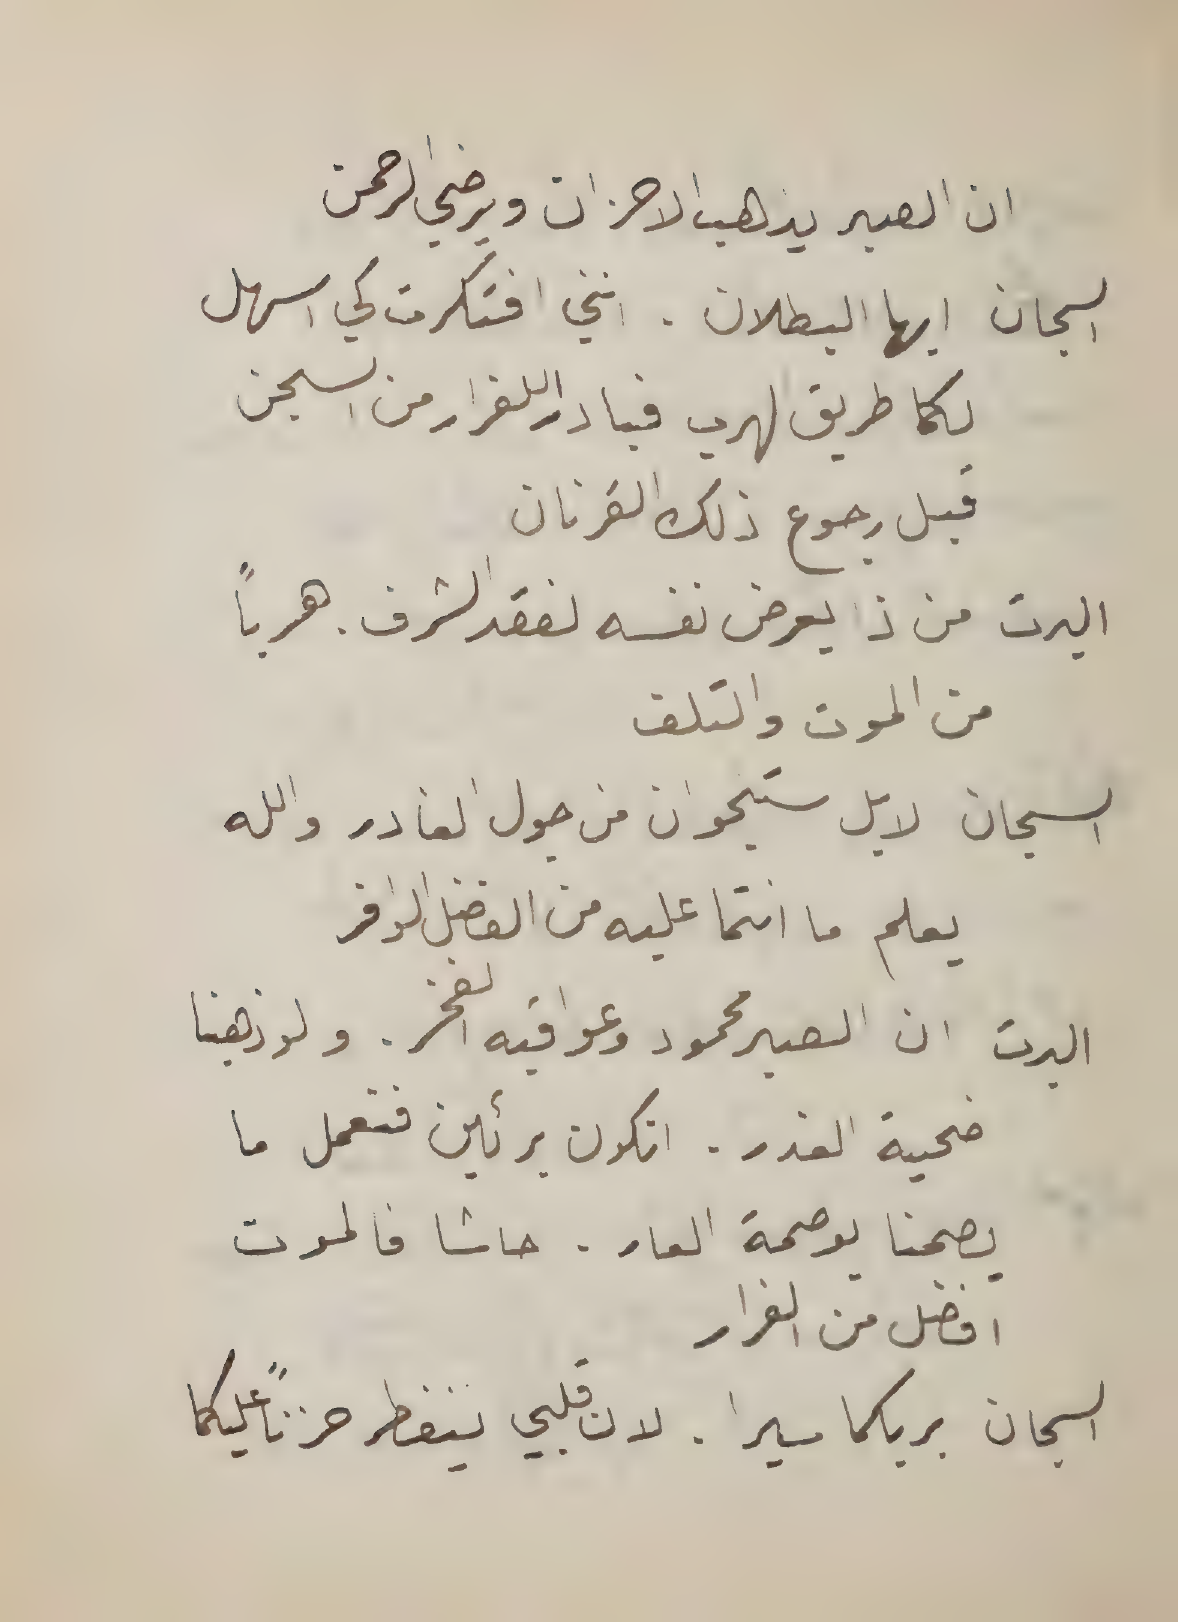 ان الصبر يذهب الاحزان ويرضي الرحمن
السجان ايها البطلان . انني افتكرت كي اسهل
لكما طريق الهرب فبادرا للفرار من السجن
قبل رجوع ذلك القرنان
البرت من ذا يعرض نفسه لفقد الشرف . هرباً
من الموت والتلف
السجان لا بل ستنجوان من جول الغادر والله
يعلم ما انتما عليه من الفضل الوافر
البرت ان الصبر محمود وعواقبه الفخر . ولو ذهبنا
ضحية الغدر . انكون برئين فنعمل ما
يصمنا بوصمة العار . حاشا فالموت
افضل من الفرار
السجان بربكما سيرا . لان قلبي ينفطر حزناً عليكما